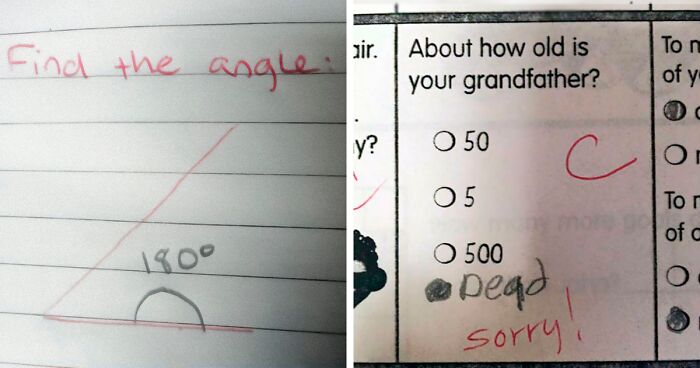 Find the angle:
180°
air.
y?
About how old is
your grandfather?
50
5
500
Dead
sorry!
C
To
of
To
of